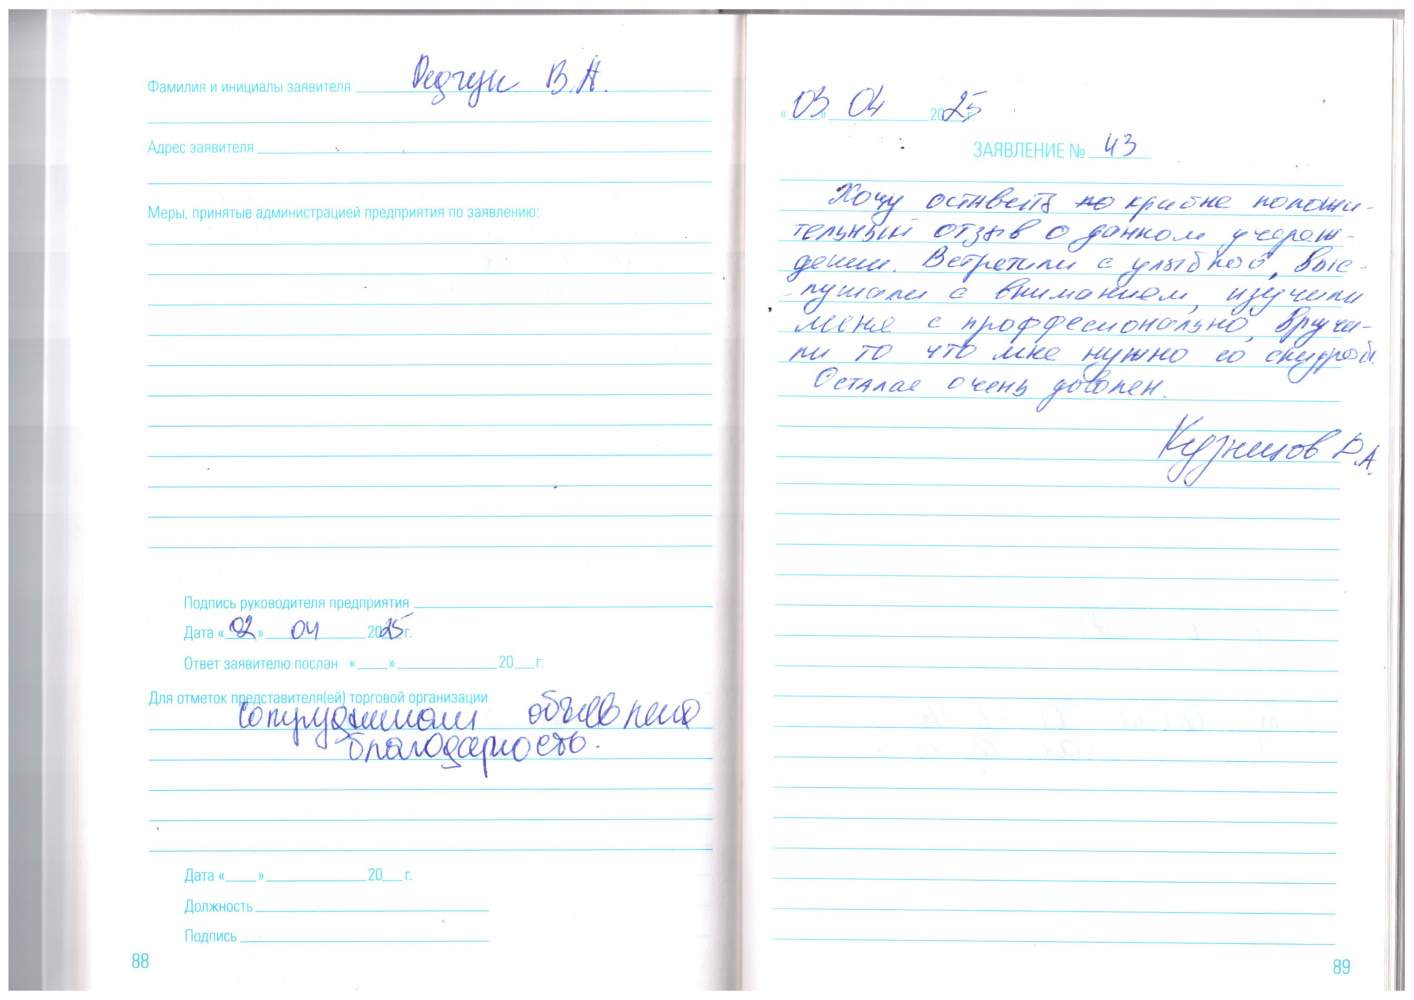 Фамилия и инициалы заявителя Редчук В.А.
Адрес заявителя
Меры, принятые администрацией предприятия по заявлению:
Подпись руководителя предприятия
Дата «02» 04 2025 г.
Ответ заявителю послан «__» ____ 20__ г.
Для отметок представителя(ей) торговой организации
Сотрудникам объявлена
благодарность.
Дата «__» ____ 20__ г.
Должность
Подпись
88
«03» 04 2025 г.
ЗАЯВЛЕНИЕ № 43
Хочу оставить крайне положи-
тельный отзыв о данном учереж-
дении. Встретили с улыбкой, выс-
лушали с вниманием, изучили
меня с проффесионально, вручи-
ли то что мне нужно со скидкой.
Осталсе очень доволен.
Кузнецов Р.А.
89